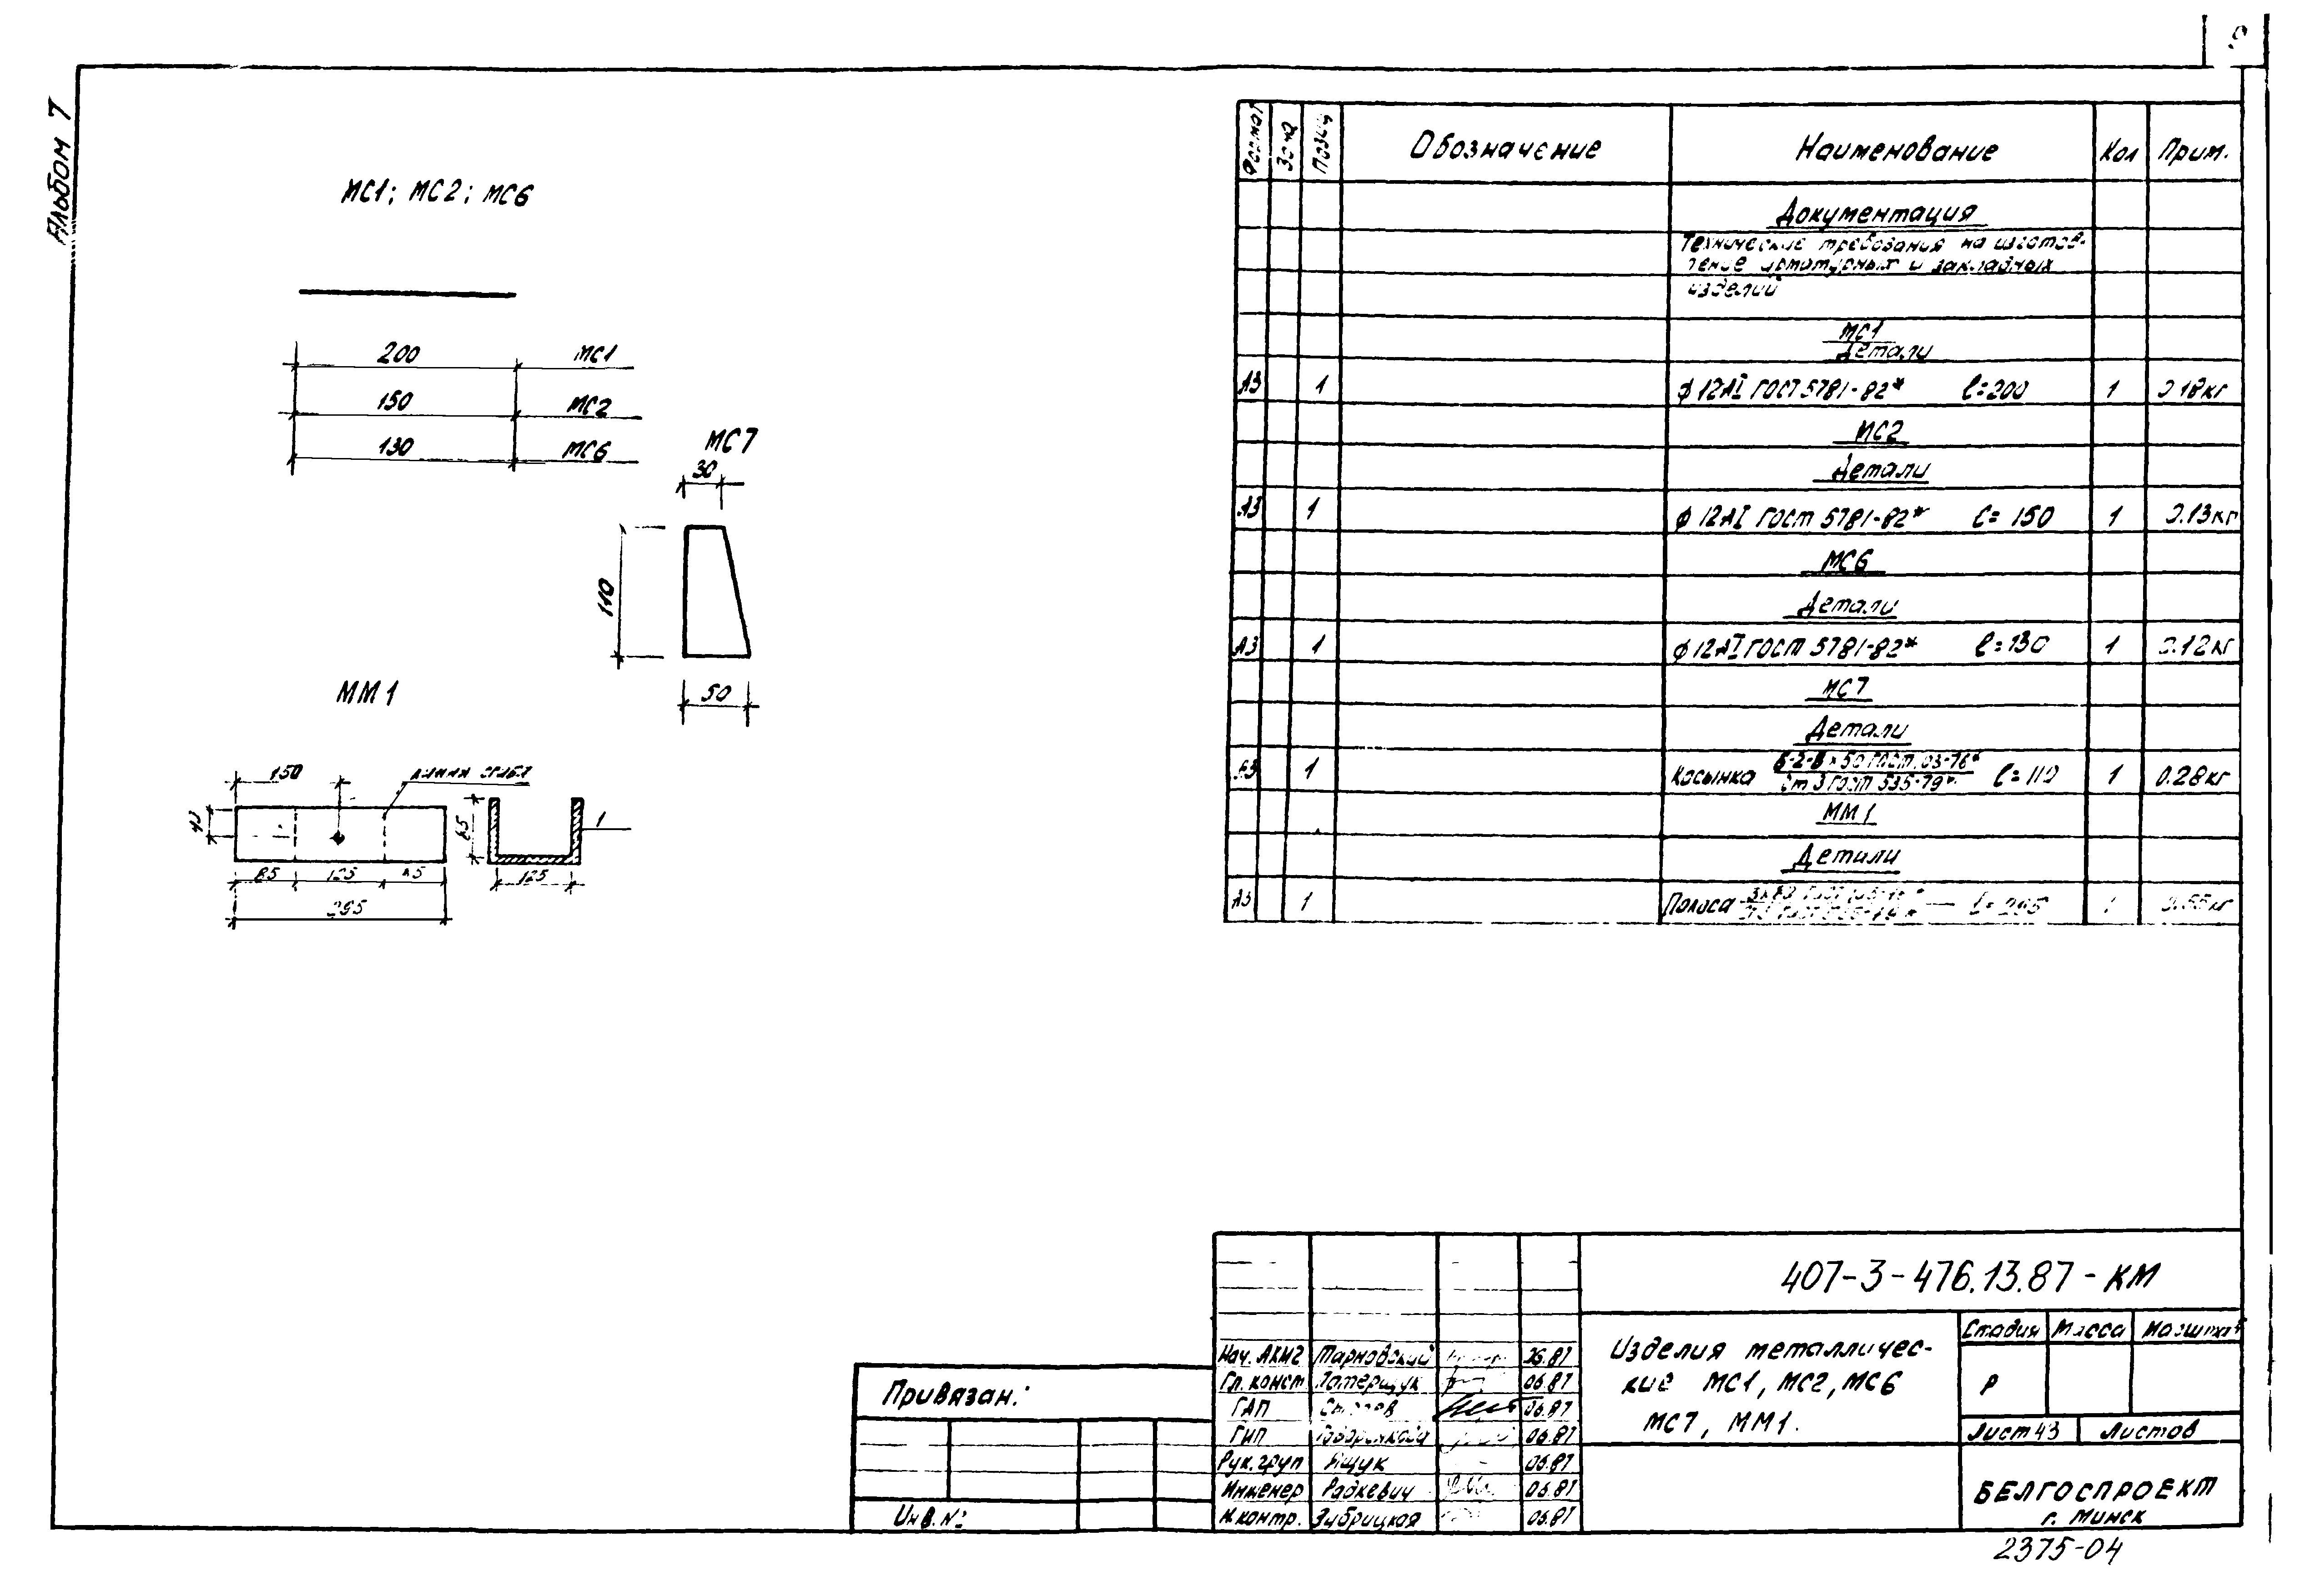 Альбом 7
МС1; МС2; МС6
200 МС1
150 МС2
130 МС6
МС7
30
110
50
ММ1
150
линия сгиба
43
85 125 85
295
85
125
1
Формат Зона Позиц Обозначение Наименование Кол Прим.
Документация
Технические требования на изготов-
ление арматурных и закладных
изделий
МС1
Детали
А3 1 ф 12АI ГОСТ 5781-82* ℓ=200 1 0.18кг
МС2
Детали
А3 1 ф 12АI ГОСТ 5781-82* ℓ= 150 1 0.13кг
МС6
Детали
А3 1 ф 12АI ГОСТ 5781-82* ℓ=130 1 0.12кг
МС7
Детали
1 Косынка ℓ=110 1 0.28кг
Ст 3 ГОСТ 535-79*
ММ1
Детали
А3 1 Полоса ℓ=295 1
407-3-476.13.87-КМ
Изделия металличес-
кие МС1, МС2, МС6
МС7, ММ1.
Стадия Масса Масштаб
Р
Лист 43 Листов
БЕЛГОСПРОЕКТ
г. Минск
Нач. АКМ2 Тарновский 06.87
Гл. конст Латерщук 06.87
ГАП 06.87
ГИП 06.87
Рук. груп Ящук 06.87
Инженер Радкевич 06.87
Н.контр. Зибрицкая 06.87
Привязан:
Инв. №
2375-04